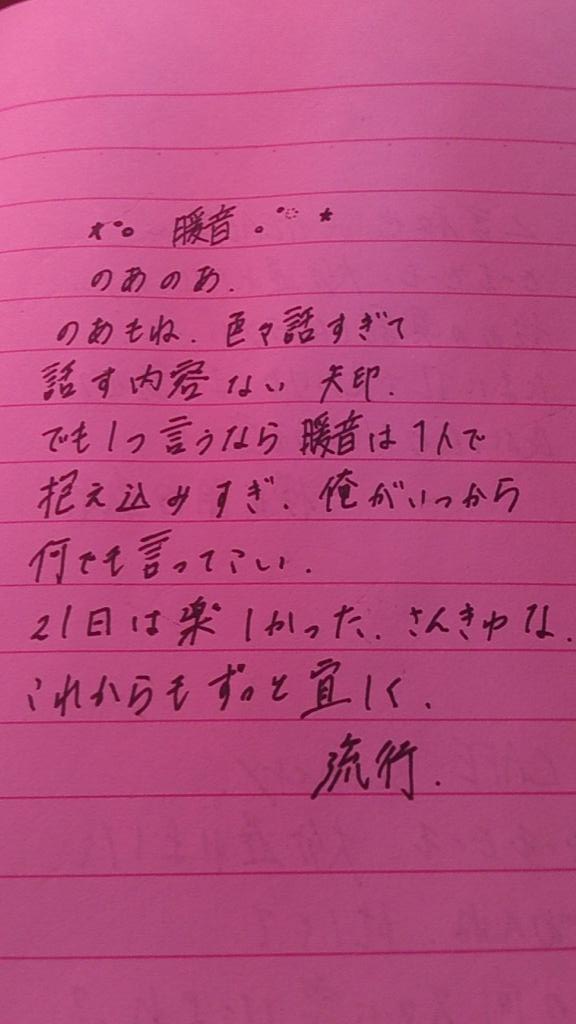 *°。 暖音 。°◌ *
のあのあ.
のあもね. 色々話すぎて
話す内容ない 矢印.
でも1つ言うなら暖音は1人で
抱え込みすぎ. 俺がいっから
何でも言ってこい.
21日は楽しかった. さんきゅな.
これからもずっと宜しく.
流行.